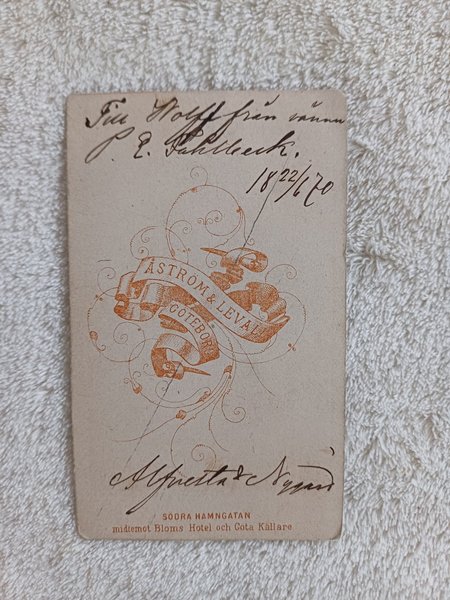 Till Wolff från vännen
P. E. Fahlbeck.
18 22/6 70
ÅSTRÖM & LEVALL
GÖTEBORG
& Nygård
SÖDRA HAMNGATAN
midtemot Bloms Hotel och Göta Källare